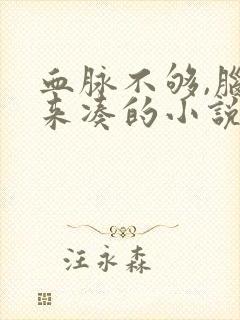 血脉不够,腦
来凑的小説
汪永森